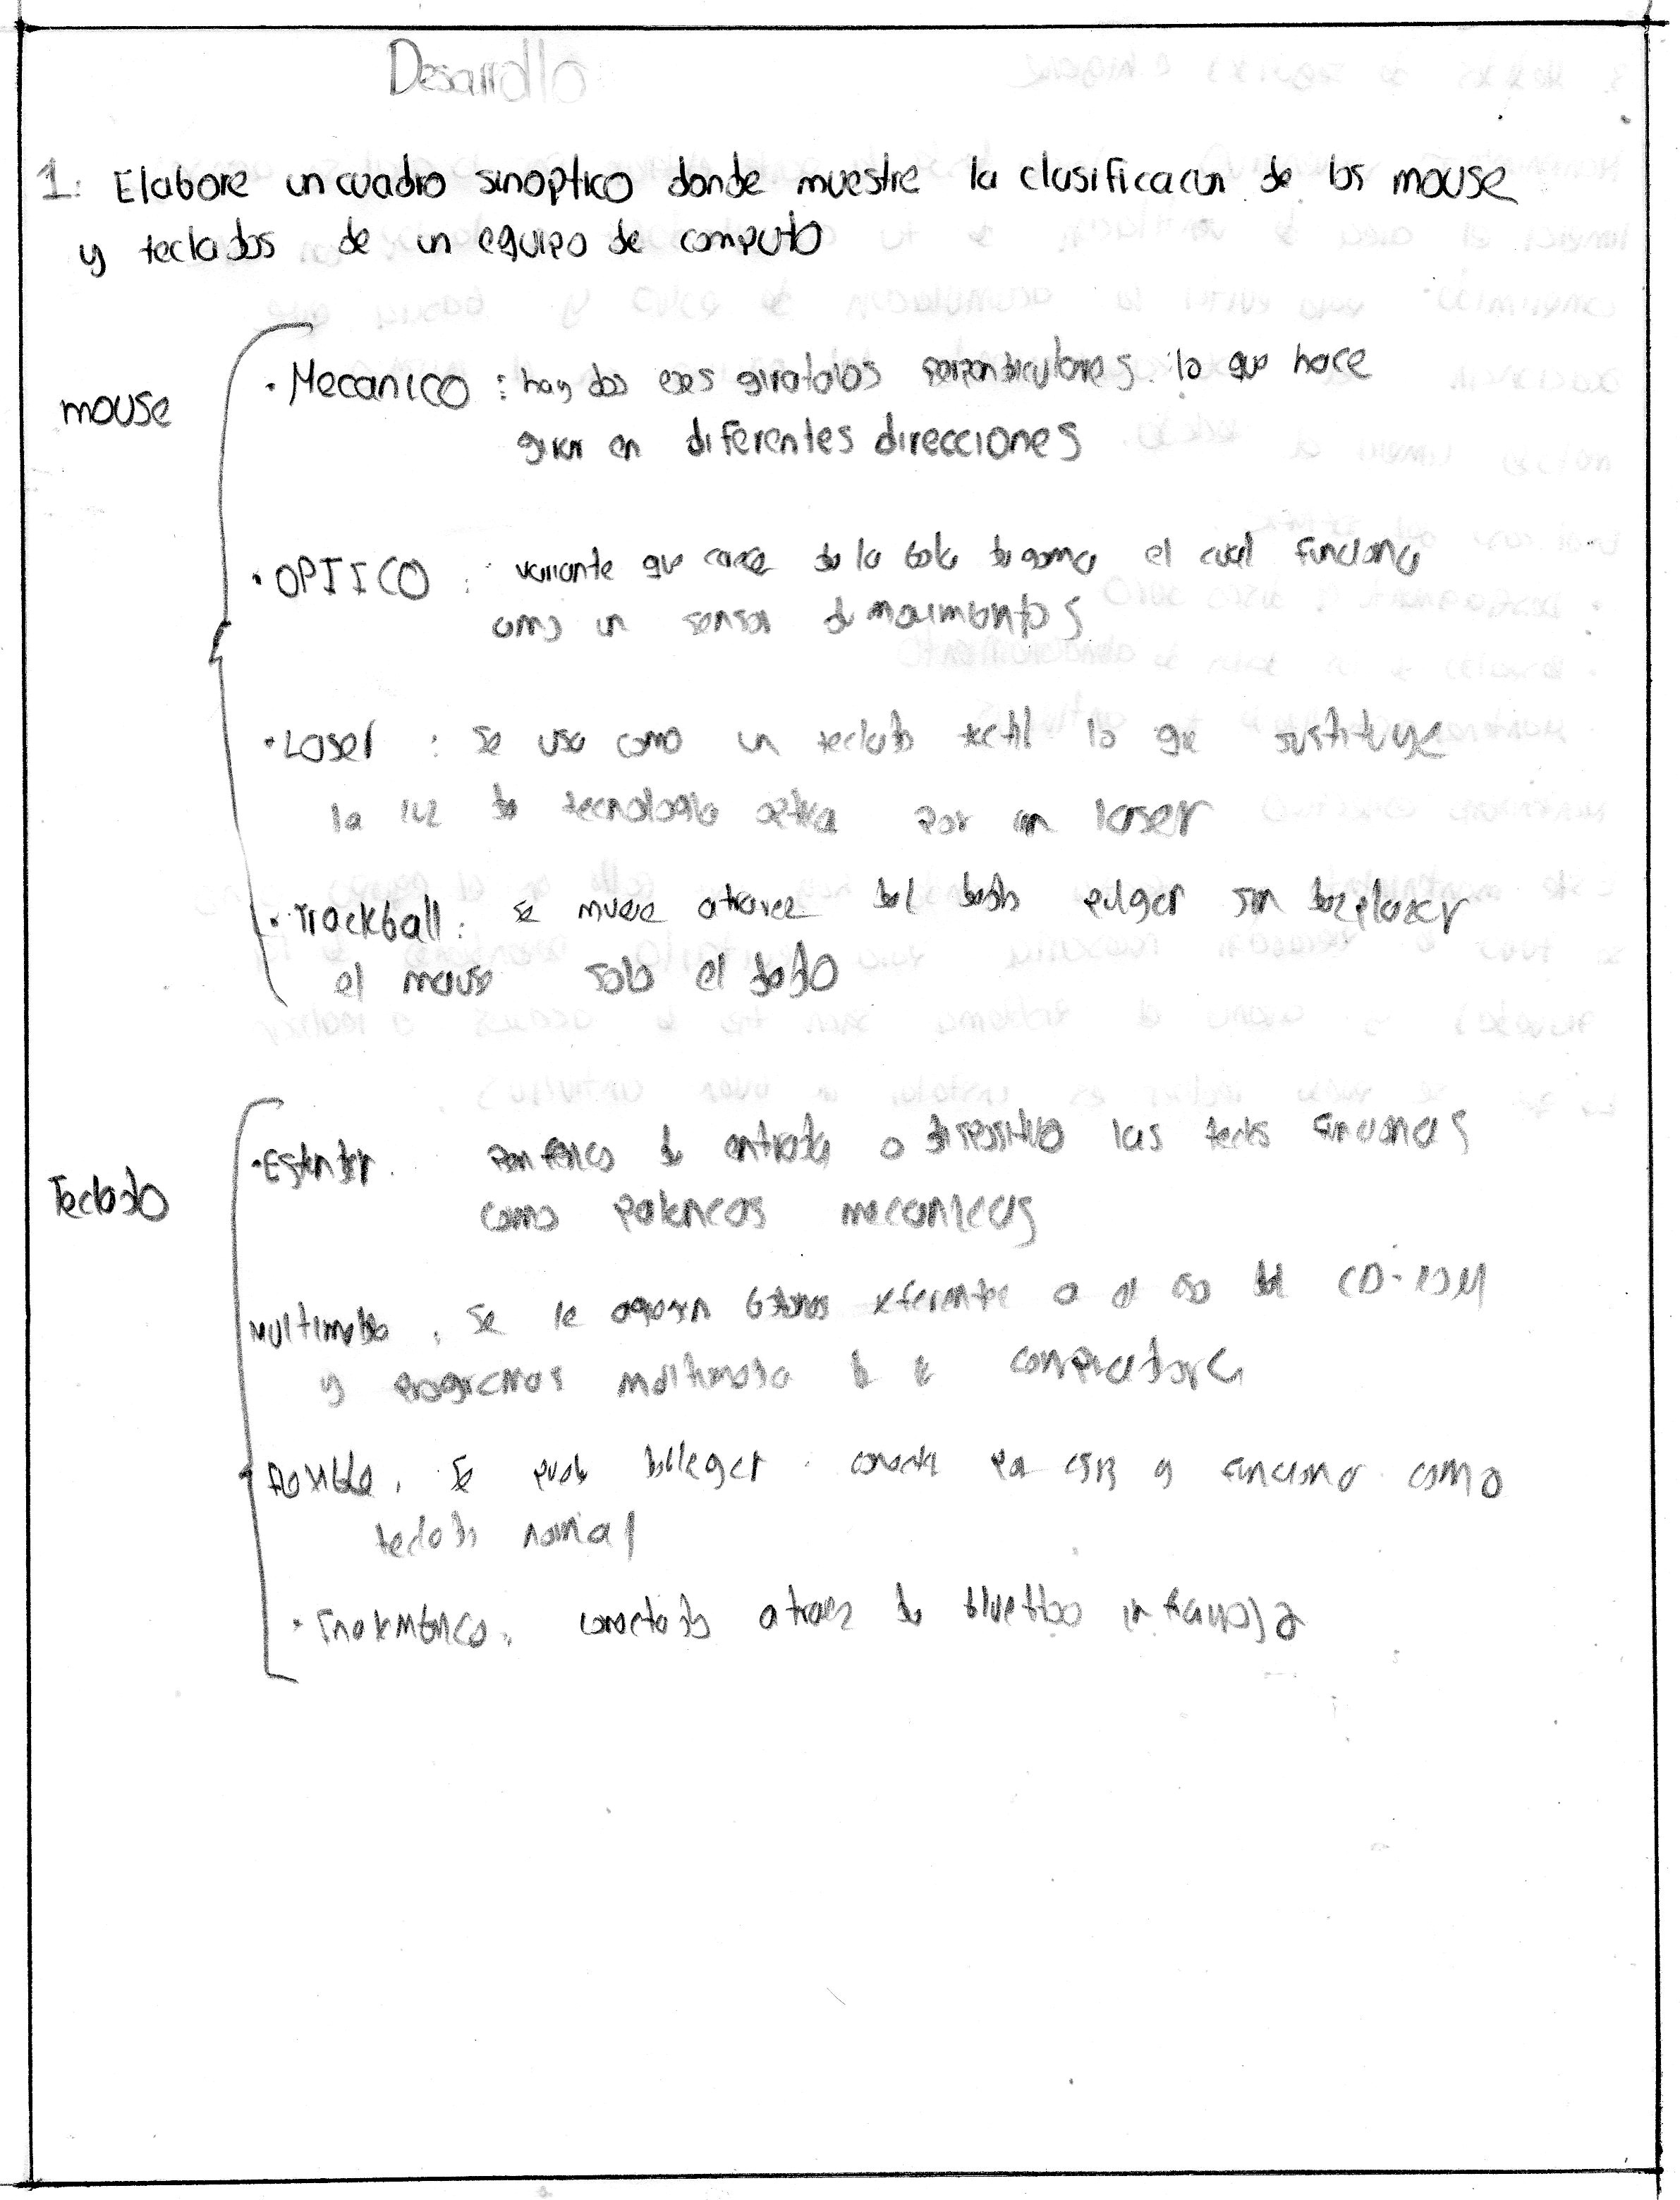 Desarrollo
1: Elabore un cuadro sinoptico donde muestre la clasificacion de los mouse
y teclados de un equipo de computo
mouse
· Mecanico : hay dos ejes giratorios perpendiculares lo que hace
girar en diferentes direcciones
· OPTICO : variante que carece de la bola de goma el cual funciona
como un sensor de movimientos
· Laser : se usa como un teclado tactil lo que sustituye
la luz de tecnologia optica por un laser
· Trackball : se mueve atravez del dedo pulgar sin dezplazar
el mouse solo el dedo
Teclado
· Estandar periferico de entrada o dispositivo las teclas funcionas
como palancas mecanicas
Multimedia : se le agregan botones referente a el so del CD-ROM
y programas multimedia de la computadora
flexible , Se puede conecta por USB y funciona como
teclado normal
· conectado a traves de